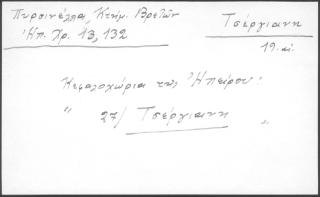 Πυρσινέλλα, Κτήμ. Βρετῶν
Ἠπ. Χρ. 13, 132
Τσέργιανη
19. αἰ.
Κεφαλοχώρια τῆς Ἠπείρου:
" 27/ Τσέργιανη "